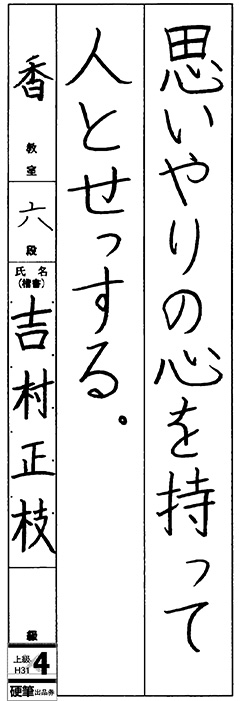 思いやりの心を持って
人とせっする。
香
教室
六
段
氏名
(楷書)
吉村正枝
級
上級
H31
4
硬筆出品券